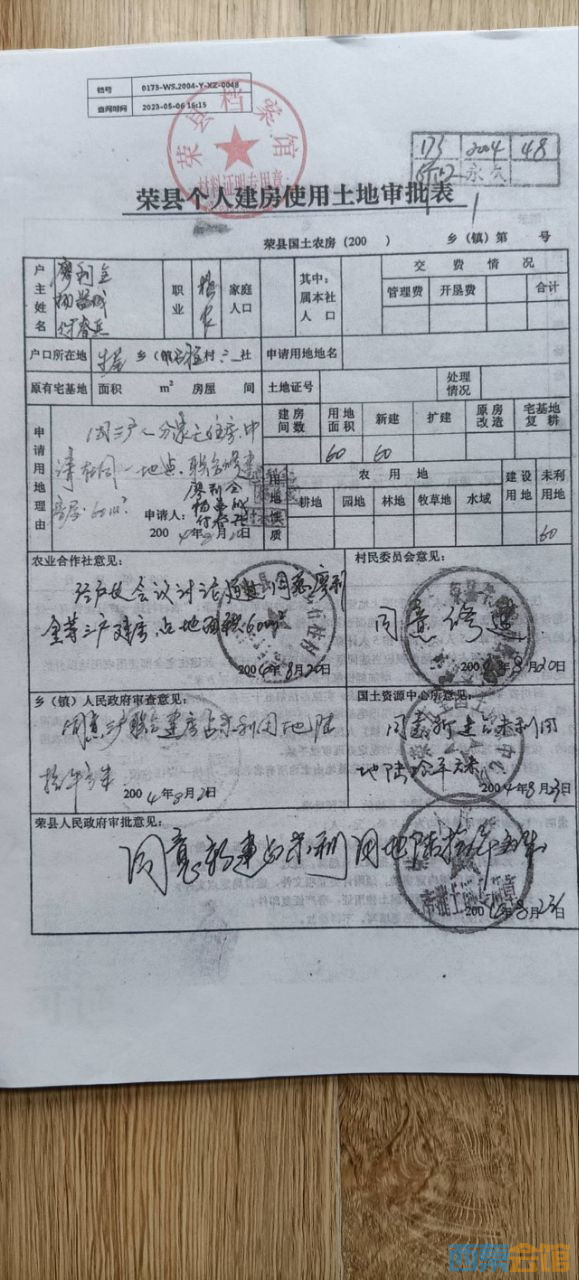 档号 0173-WS.2004-Y-XZ-0048
查阅时间 2023-05-06 16:15
荣县档案馆
材料证明专用章
173 2004 48
永久
荣县个人建房使用土地审批表
荣县国土农房(200 ) 乡(镇)第 号
户主姓名 廖利全
职业
家庭人口
其中:属本社人口
交费情况
管理费 开垦费 合计
户口所在地 乡(镇) 村 社 申请用地地名
原有宅基地 面积 m² 房屋 间 土地证号 处理情况
申请用地理由
因三户人分家无住房,申
请在同一地点,联合修建
住房,60m²
申请人: 廖利全
2004年8月20日
建房间数 用地面积 新建 扩建 原房改造 宅基地复耕
60 60
用地性质
农用地 建设用地 未利用地
耕地 园地 林地 牧草地 水域
60
农业合作社意见:
经户代会议讨论通过,同意廖利
全等三户建房,占地面积60m²
2004年8月20日
村民委员会意见:
同意修建.
2004年8月20日
乡(镇)人民政府审查意见:
同意三户联合建房占未利用地陆
拾平方米
2004年8月21日
国土资源中心所意见:
同意新建占未利用
地陆拾平方米
2004年8月23日
荣县人民政府审批意见:
同意新建占未利用地陆拾平方米
2004年8月23日
西祠会馆